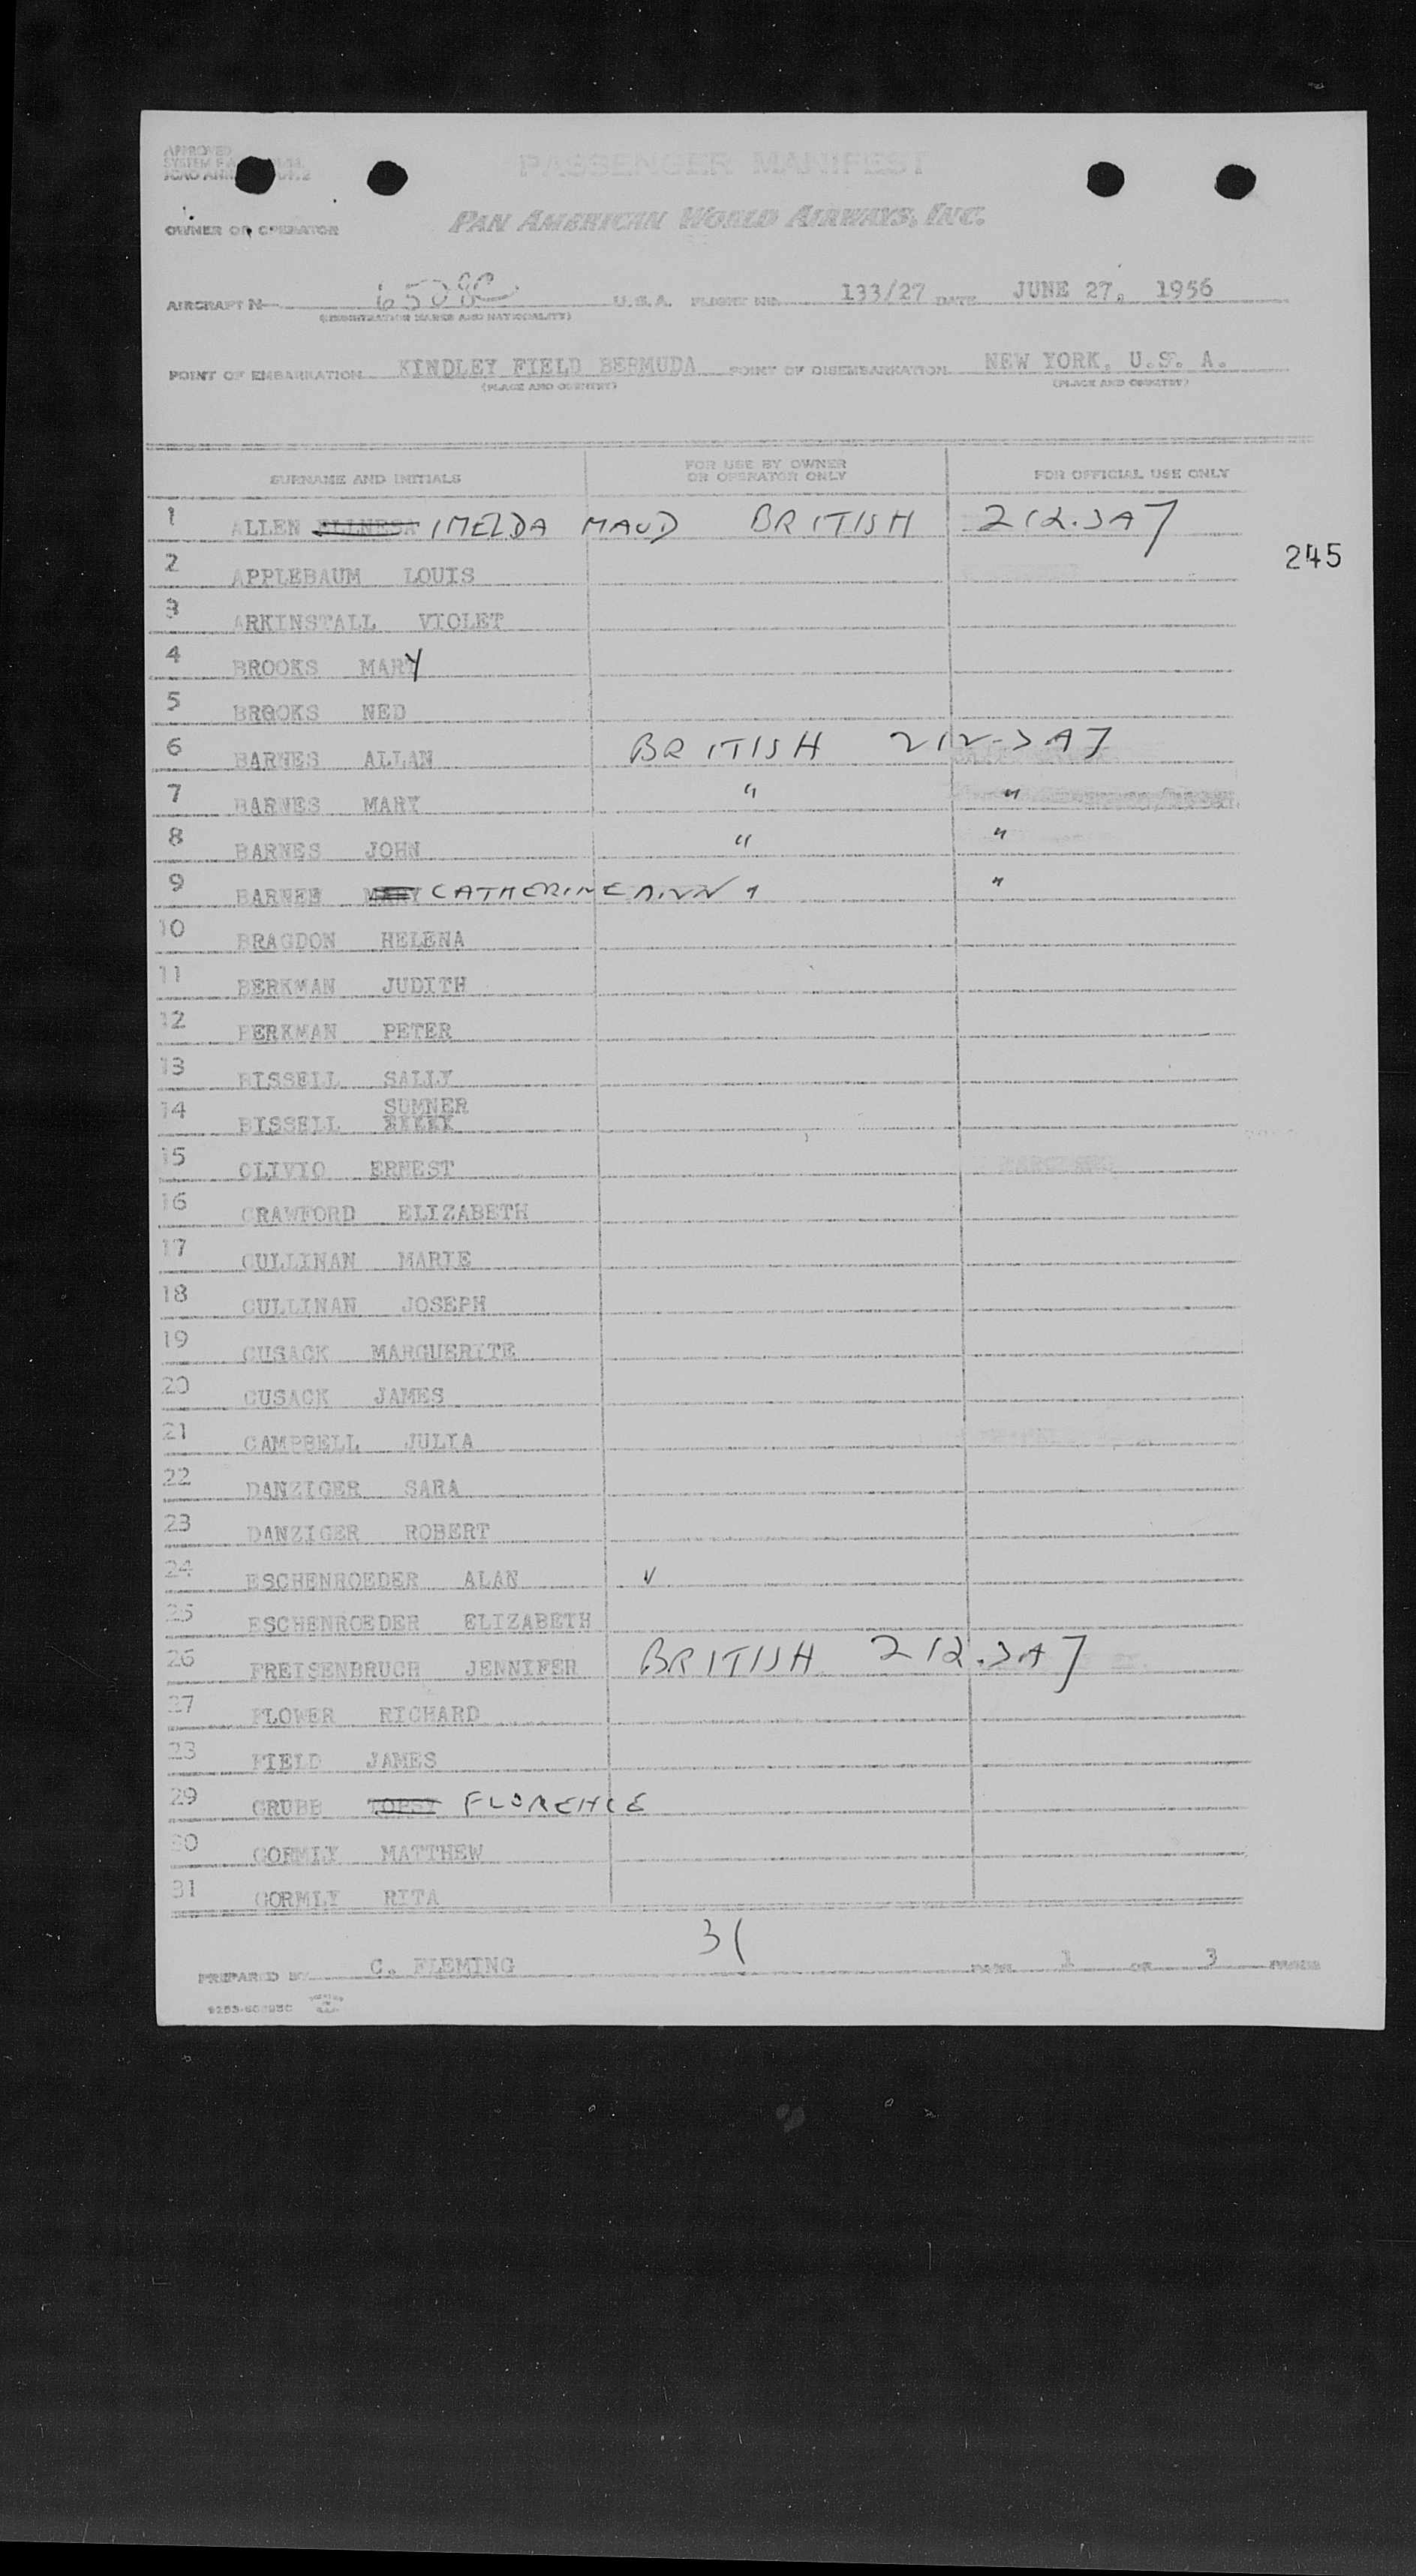 APPROVED
PASSENGER MANIFEST
OWNER OR OPERATOR PAN AMERICAN WORLD AIRWAYS, INC.
AIRCRAFT N U.S.A. FLIGHT NO. 133/27 DATE JUNE 27, 1956
(REGISTRATION MARKS AND NATIONALITY)
POINT OF EMBARKATION KINDLEY FIELD BERMUDA POINT OF DISEMBARKATION NEW YORK, U.S. A.
(PLACE AND COUNTRY) (PLACE AND COUNTRY)
SURNAME AND INITIALS FOR USE BY OWNER OR OPERATOR ONLY FOR OFFICIAL USE ONLY
1 ALLEN IMELDA MAUD BRITISH 212.3A7
245
2 APPLEBAUM LOUIS
3 ARKINSTALL VIOLET
4 BROOKS MARY
5 BROOKS NED
6 BARNES ALLAN BRITISH 212-3A7
7 BARNES MARY " "
8 BARNES JOHN " "
9 BARNES MARY CATHERINE ANN " "
10 BRAGDON HELENA
11 BERKMAN JUDITH
12 BERKMAN PETER
13 BISSELL SALLY
14 BISSELL SUMNER
15 OLIVIO ERNEST
16 CRAWFORD ELIZABETH
17 CULLINAN MARIE
18 CULLINAN JOSEPH
19 CUSACK MARGUERITE
20 CUSACK JAMES
21 CAMPBELL JULIA
22 DANZIGER SARA
23 DANZIGER ROBERT
24 ESCHENROEDER ALAN
25 ESCHENROEDER ELIZABETH
26 FREISENBRUCH JENNIFER BRITISH 212.3A7
27 FLOWER RICHARD
28 FIELD JAMES
29 GRUBB TOPSY FLORENCE
30 GORMLY MATTHEW
31 GORMLY RITA
31
PREPARED BY C. FLEMING PAGE 1 OF 3 PAGES